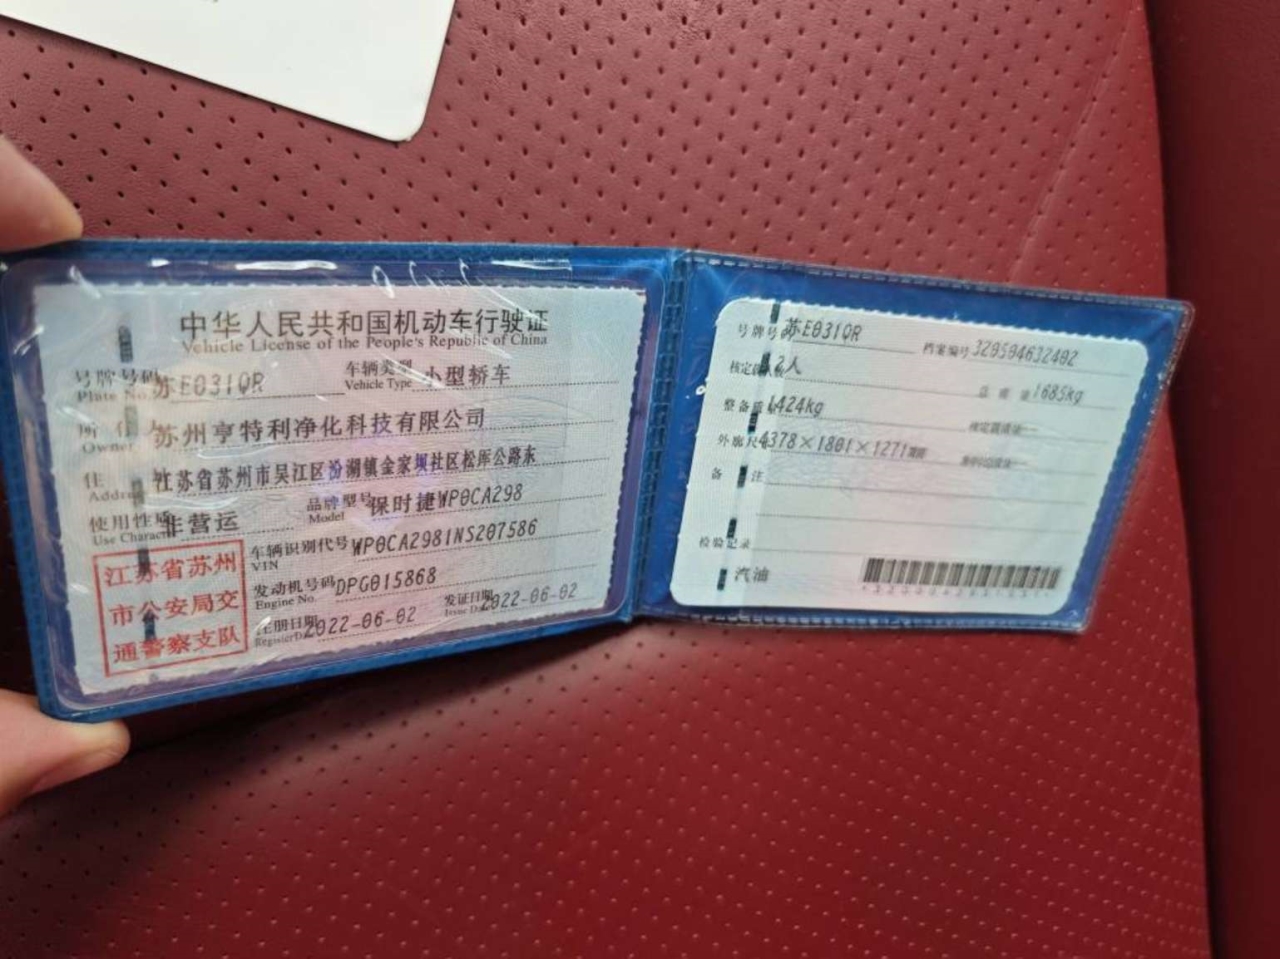 中华人民共和国机动车行驶证
Vehicle License of the People's Republic of China
号牌号码 苏E031QR 车辆类型 小型轿车
Plate No. Vehicle Type
所 苏州亨特利净化科技有限公司
Owner
住 江苏省苏州市吴江区汾湖镇金家坝社区松厍公路东
使用性质 非营运 品牌型号 保时捷WP0CA298
Use Charact Model
车辆识别代号 WP0CA2981NS207586
VIN
发动机号码 DPG015868
Engine No.
注册日期 2022-06-02 发证日期 2022-06-02
江苏省苏州
市公安局交
通警察支队
号牌号 苏E031QR 档案编号 320504632402
核定载 2人 总 质 量 1685kg
整备质 1424kg
外廓尺 4378×1801×1271
备 注
检验记录
汽油